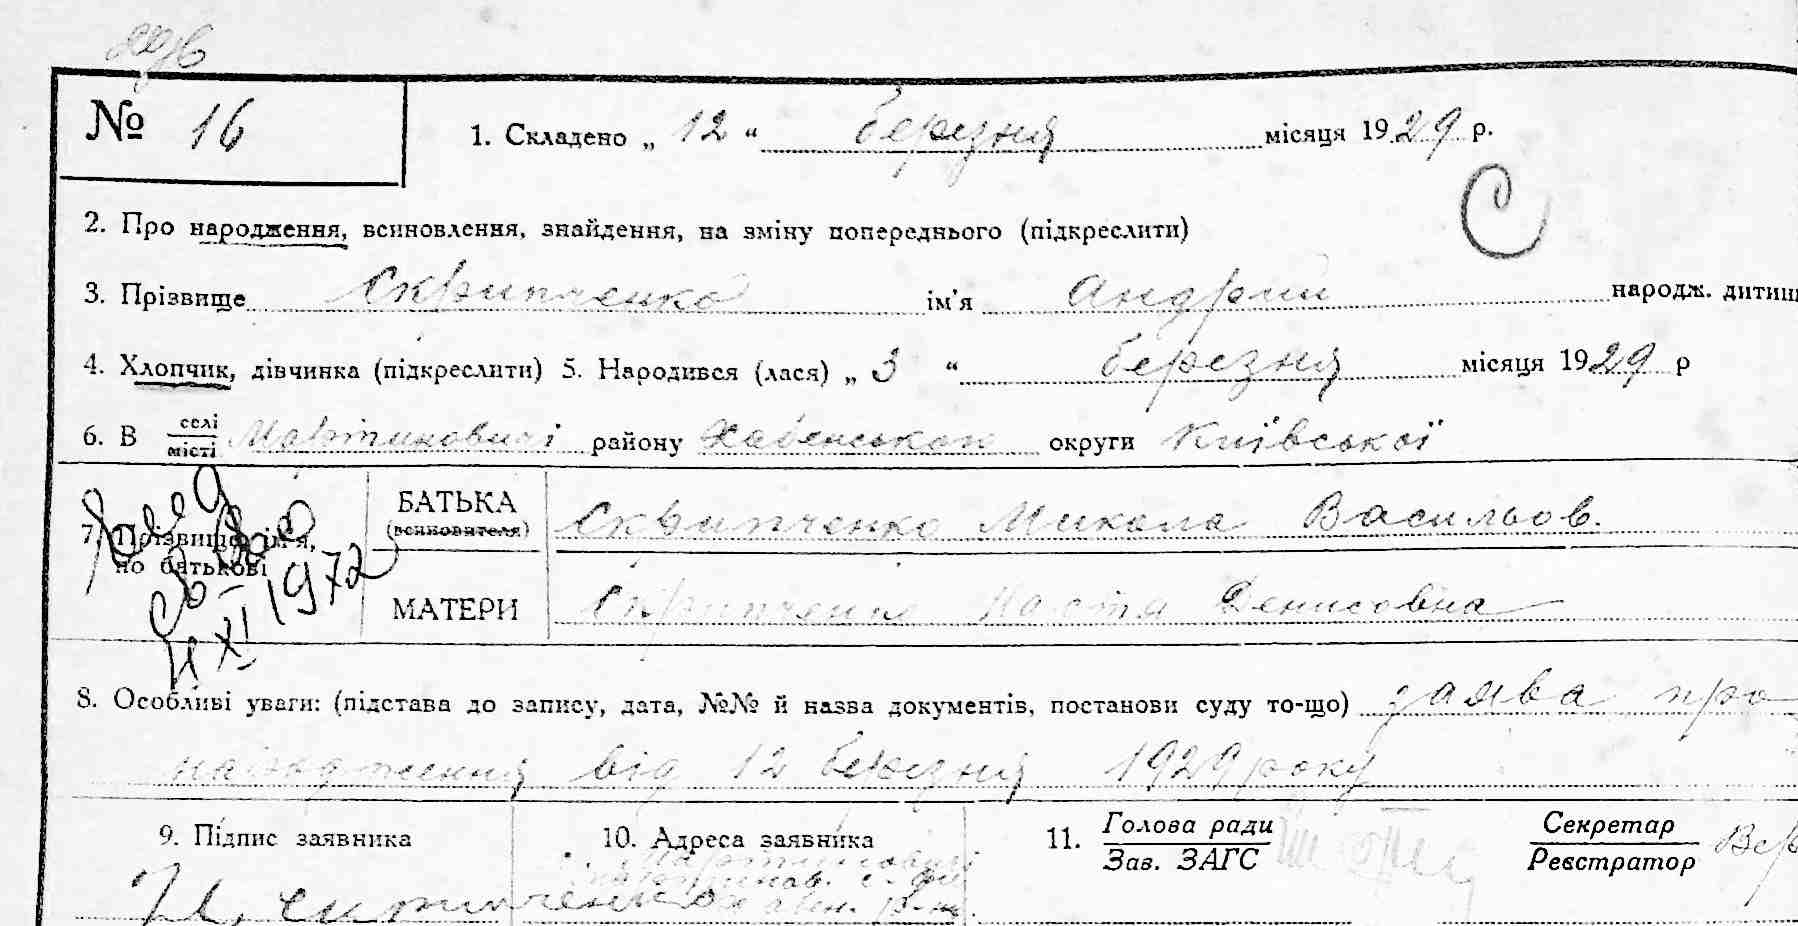 № 16
1. Складено „ 12 “ березня місяця 1929 р.
С
2. Про народження, всиновлення, знайдення, на зміну попереднього (підкреслити)
3. Прізвище Скрипченко ім'я Андрий народж. дитин
4. Хлопчик, дівчинка (підкреслити) 5. Народився (лася) „ 3 “ березня місяця 1929 р
6. В селі місті Мартиновичі району Хабенськом округи Київської
7. Прізвище, ім'я, по батькові
1972
БАТЬКА (всиновителя) Скрипченко Микола Васильов.
МАТЕРИ Скрипченко Настя Денисовна
8. Особливі уваги: (підстава до запису, дата, №№ й назва документів, постанови суду то-що) заява про
народження від 12 березня 1929 року
9. Підпис заявника 10. Адреса заявника 11. Голова ради Зав. ЗАГС Секретар Реєстратор